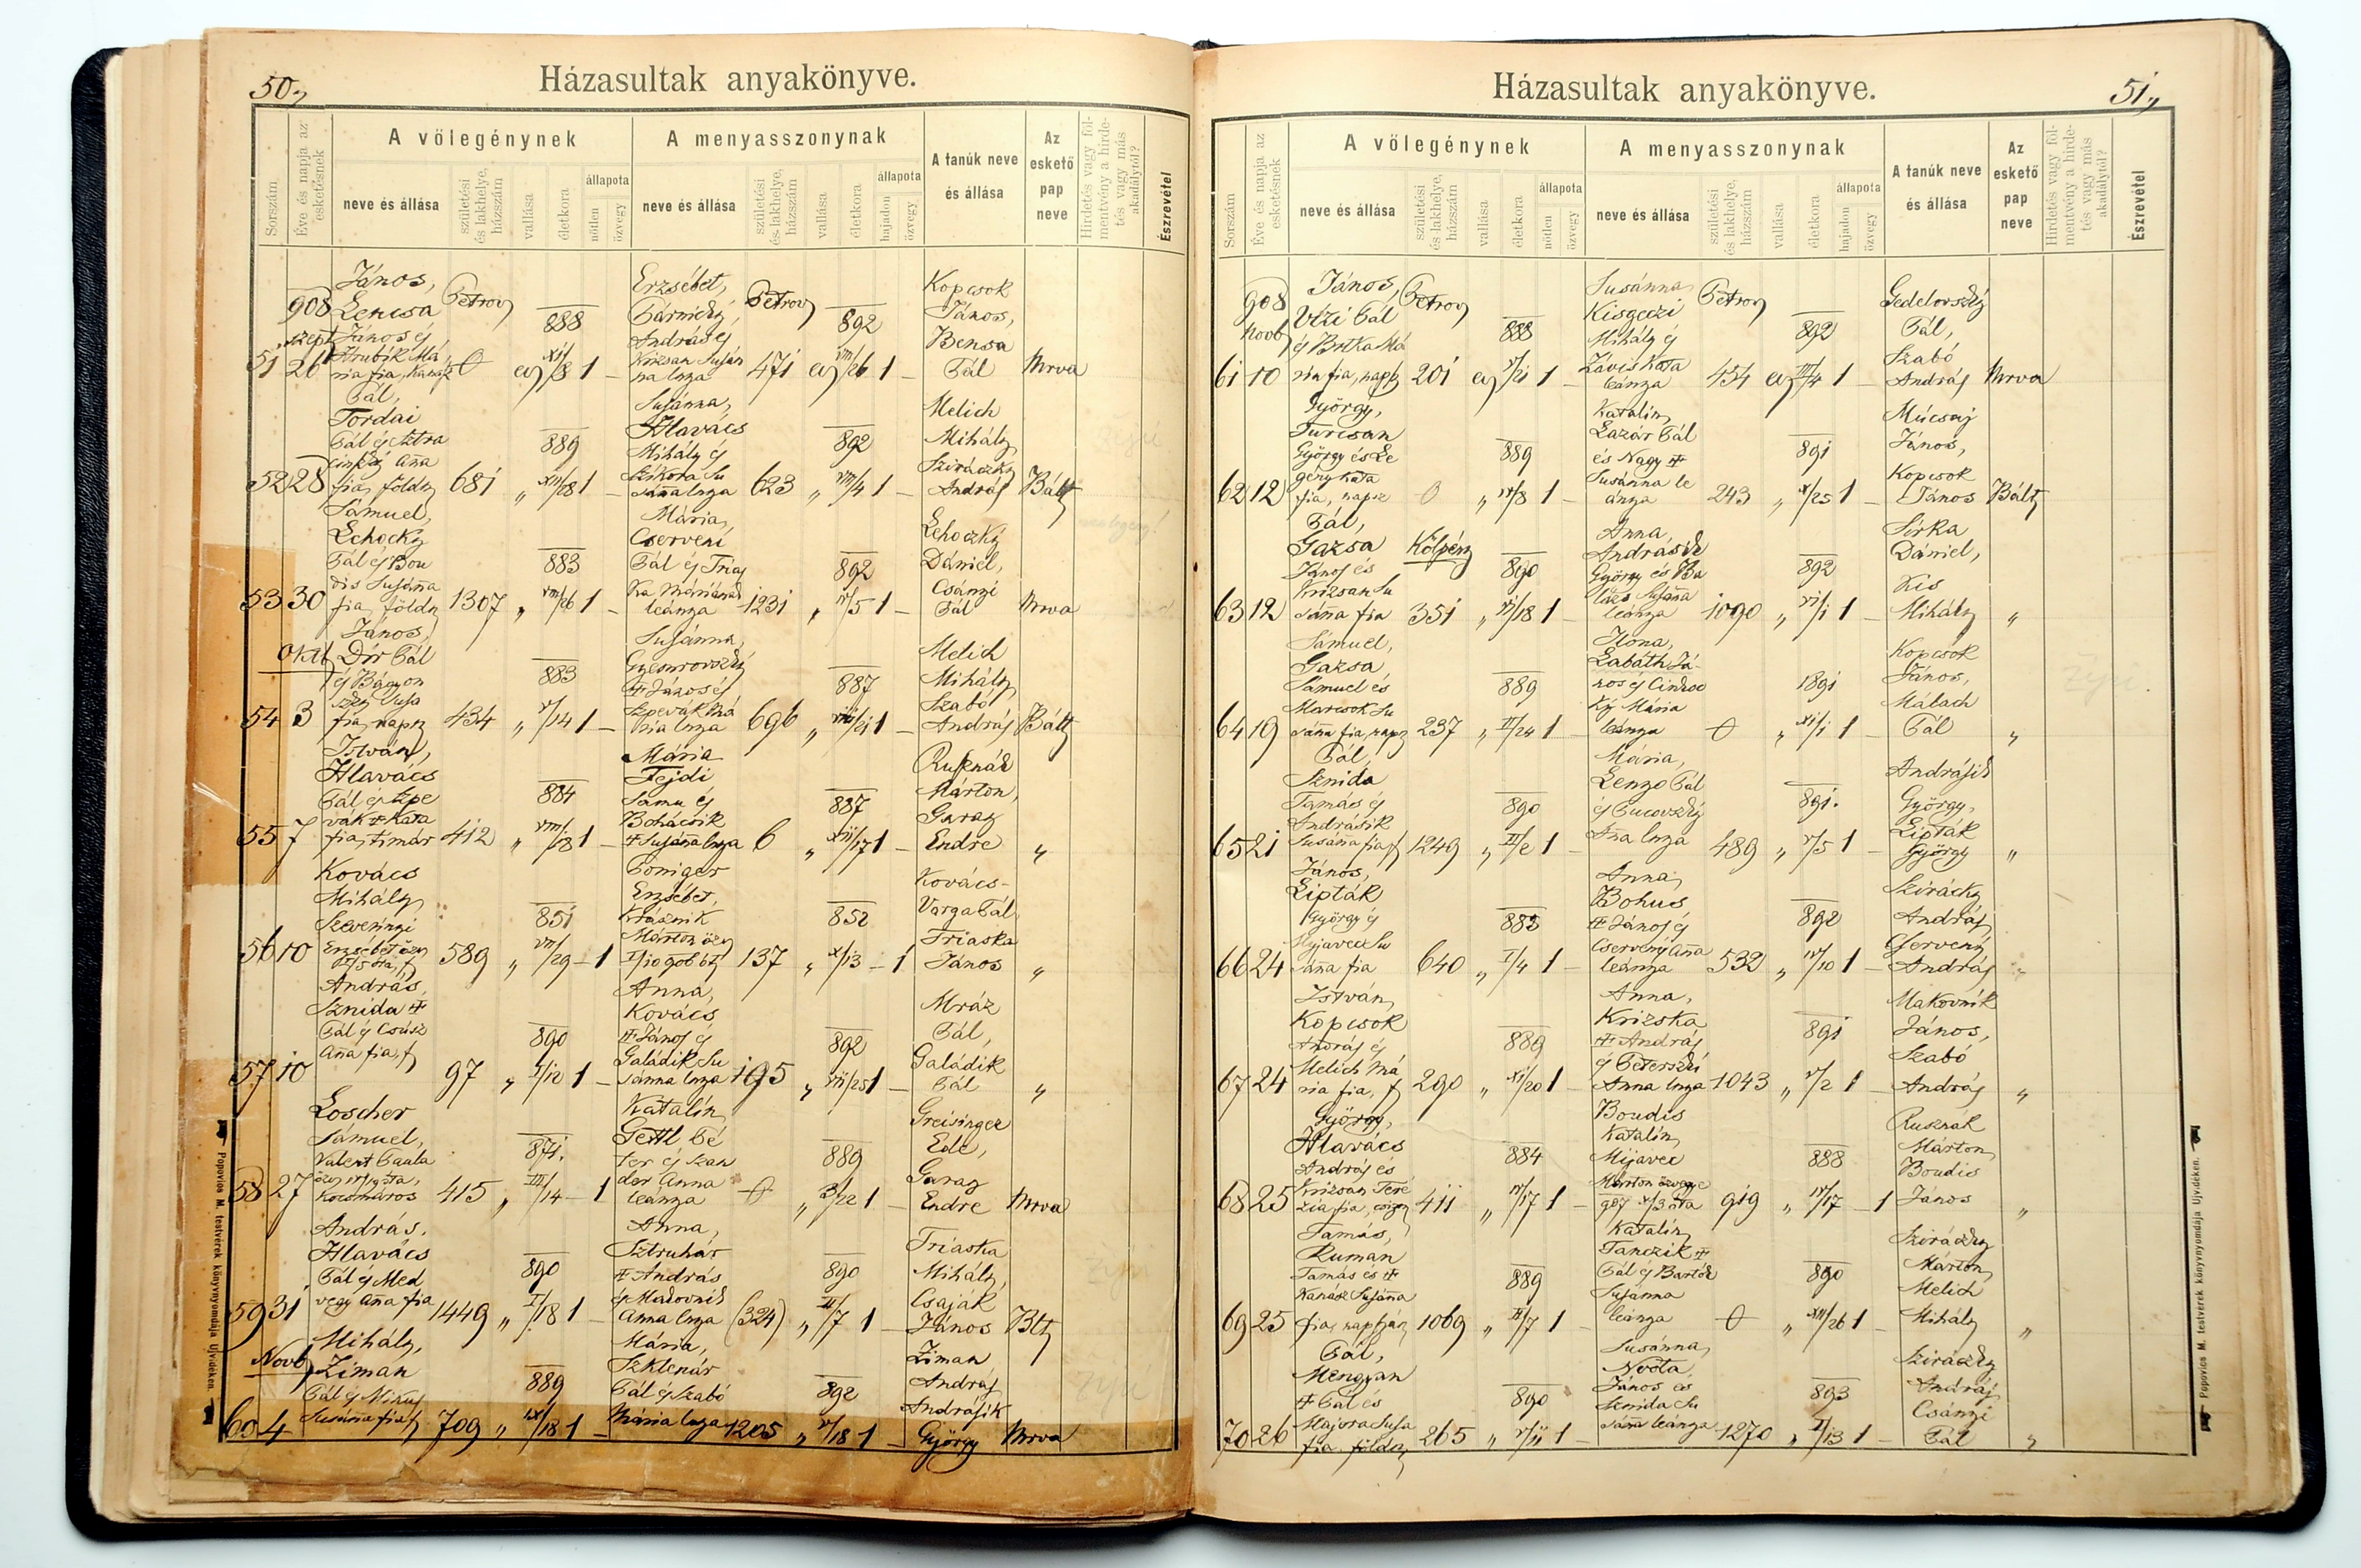 50.
Házasultak anyakönyve.
Sorszám
Éve és napja az esketésnek
A völegénynek
neve és állása
születési és lakhelye, házszám
vallása
életkora
állapota
nőtlen
özvegy
A menyasszonynak
neve és állása
születési és lakhelye, házszám
vallása
életkora
állapota
hajadon
özvegy
A tanúk neve és állása
Az eskető pap neve
Hirdetés vagy föl-
mentvény a hirde-
tés vagy más
akadálytól?
Észrevétel
908 szept
51 26
János,
Lencsa
János és
Hrubik Má
ria fia, kanász
Petrov
0 ev 888 XI/8 1 –
Erzsébet,
András és
Krizsan Susán
na lnya
Petrov
471 ev 892 VIII/26 1 –
Kopcsok
János,
Bensa
Pál
Mrva
52 28
Pál,
Tordai
Pál és Sztra
Anna
fia, földm
681 „ 889 XII/28 1 –
Susánna,
Hlavács
Mihály és
Szikora Su
sánna lnya
623 „ 892 VIII/4 1 –
Melich
Mihály
Szirácky
András
Bált
53 30
Sámuel,
Lehocky
Pál és Bou
dis Susánna
fia, földm
1307 „ 883 VIII/26 1 –
Mária,
Cserveni
Pál és Trias
ka Máriának
leánya
1231 „ 892 IV/5 1 –
Lehoczky
Dániel,
Csányi
Pál
Mrva
Oktb
54 3
János,
Dír Pál
és Bágyon
fia, napsz
434 „ 883 V/14 1 –
Susánna,
János és
Szpevák Má
ria lnya
696 „ 887 VIII/21 1 –
Melich
Mihály
Szabó
András
Bált
55 7
István,
Hlavács
Pál és Szpe
vák Kata
fia, timár
412 „ 884 VIII/18 1 –
Mária
Fejdi
Samu és
Bohácsik
Susánna lnya
6 „ 887 XII/17 1 –
Rusznák
Márton,
Garay
Endre
„
56 10
Kovács
Mihály
Szeverinyi
Erzsébet özv
589 „ 851 VII/29 – 1
Poniger
Erzsébet,
Krásnik
Márton özv
137 „ 852 X/13 – 1
Kovács-
Varga Pál
Triaska
János
„
57 10
András,
Sznida
Pál és Csúsz
Anna fia, f
97 „ 890 I/12 1 –
Anna,
Kovács
János és
Galádik Su
sánna lnya
195 „ 892 VII/25 1 –
Mráz
Pál,
Galádik
Pál
„
58 27
Loscher
Sámuel,
Valent Paula
Kocsmáros
415 „ 871. III/14 – 1
Katalin
Gettl Pé
ter és Szan
der Anna
leánya
0 „ 889 1 –
Greisinger
Ede,
Garay
Endre
Mrva
59 31
András.
Hlavács
Pál és Med
vegy Anna fia
1449 „ 890 I/18 1 –
Anna,
Sztruhár
András
és Makovnik
Anna lnya
(324) „ 890 II/7 1 –
Triaska
Mihály,
Csaják
János
Blt
Novb
60 4
Mihály,
Ziman
Pál és Mikus
Susánna fia f
709 „ 889 IX/18 1 –
Mária,
Szklenár
Pál és Szabó
Mária lnya
1205 „ 892 V/18 1 –
Ziman
András
Andrásik
György
Mrva
Popovics M. testvérek könyvnyomdája Ujvidéken.
51.
Házasultak anyakönyve.
Sorszám
Éve és napja az esketésnek
A völegénynek
neve és állása
születési és lakhelye, házszám
vallása
életkora
állapota
nőtlen
özvegy
A menyasszonynak
neve és állása
születési és lakhelye, házszám
vallása
életkora
állapota
hajadon
özvegy
A tanúk neve és állása
Az eskető pap neve
Hirdetés vagy föl-
mentvény a hirde-
tés vagy más
akadálytól?
Észrevétel
908 Novb
61 10
János,
Vizi Pál
és Botka Má
ria fia, napsz
Petrov
201 ev 888 V/21 1 –
Susánna
Kisgeczi
Mihály és
Závis Kata
leánya
Petrov
454 ev 892 III/4 1 –
Gedelovszky
Pál,
Szabó
András
Mrva
62 12
György,
Turcsan
György és Le
gény Kata
fia, napsz
0 „ 889 IV/8 1 –
Katalin
Lazár Pál
és Nagy
Susánna le
ánya
243 „ 891 X/25 1 –
Múcsaj
János,
Kopcsok
János
Bált
63 12
Pál,
Gazsa
János és
Krizsan Su
sánna fia
Kölpény
351 „ 890 VI/18 1 –
Anna,
Andrasik
György és Ba
lázs Susánna
leánya
1090 „ 892 VI/1 1 –
Sirka
Dániel,
Kis
Mihály
„
64 19
Sámuel,
Gazsa
Sámuel és
Marcsok Su
sánna fia, napsz
237 „ 889 II/24 1 –
Ilona,
Labáth Já-
nos és
Mária
leánya
0 „ 1891 XI/1 1 –
Kopcsok
János,
Málach
Pál
„
65 21
Pál,
Sznida
Tamás és
Andrásik
Susánna fia f
1249 „ 890 II/2 1 –
Mária,
Lenzo Pál
és Pucovszky
Anna lnya
489 „ 891. V/5 1 –
Andrásik
György,
Lipták
György
„
66 24
János,
Lipták
György és
Myjavec Su
sánna fia
640 „ 883 I/4 1 –
Anna,
Bohus
János és
Cserveny Anna
leánya
532 „ 892 IV/10 1 –
Szirácky
András
Cserveny
András
„
67 24
István
Kopcsok
András és
Melich Má
ria fia, f
290 „ 889 XI/20 1 –
Anna,
Krizska
András
és Peterszki
Anna lnya
1043 „ 891 V/2 1 –
Makovnik
János,
Szabó
András
„
68 25
György,
Hlavács
András és
Krizsan Teré
zia fia,
411 „ 884 IV/17 1 –
Boudis
Katalin
Mijavec
Márton özvegye
907 X/3 óta
919 „ 888 IV/17 – 1
Rusznák
Márton
Boudis
János
„
69 25
Tamás,
Ruman
Tamás és
Kanász Susánna
fia, napszám
1069 „ 889 XI/7 1 –
Katalin
Tanczik
Pál és Bartók
Susánna
leánya
0 „ 890 XII/26 1 –
Sziráczky
Márton
Melich
Mihály
„
70 26
Pál,
Mengyan
Pál és
Majera Susa
fia földm
265 „ 890 V/11 1 –
Susánna,
Nvota
János és
Sznida Su
sánna leánya
1270 „ 893 I/13 1 –
Sziráczky
András,
Csányi
Pál
„
Popovics M. testvérek könyvnyomdája Ujvidéken.